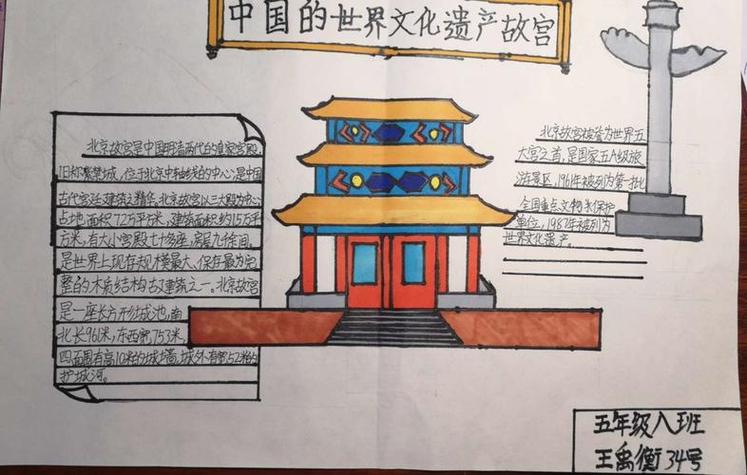 中国的世界文化遗产故宫
北京故宫是中国明清两代的皇家宫殿,
旧称紫禁城,位于北京中轴线的中心,是中国
古代宫廷建筑之精华。北京故宫以三大殿为中心
占地面积72万平方米,建筑面积约15万平
方米,有大小宫殿七十多座,房屋九千余间。
是世界上现存规模最大、保存最为完
整的木质结构古建筑之一。北京故宫
是一座长方形城池,南
北长961米,东西宽753米,
四面围有高10米的城墙,城外有宽52米的
护城河。
北京故宫被誉为世界五
大宫之首,是国家五A级旅
游景区,1961年被列为第一批
全国重点文物保护
单位,1987年被列为
世界文化遗产。
五年级八班
王禹衡 34号